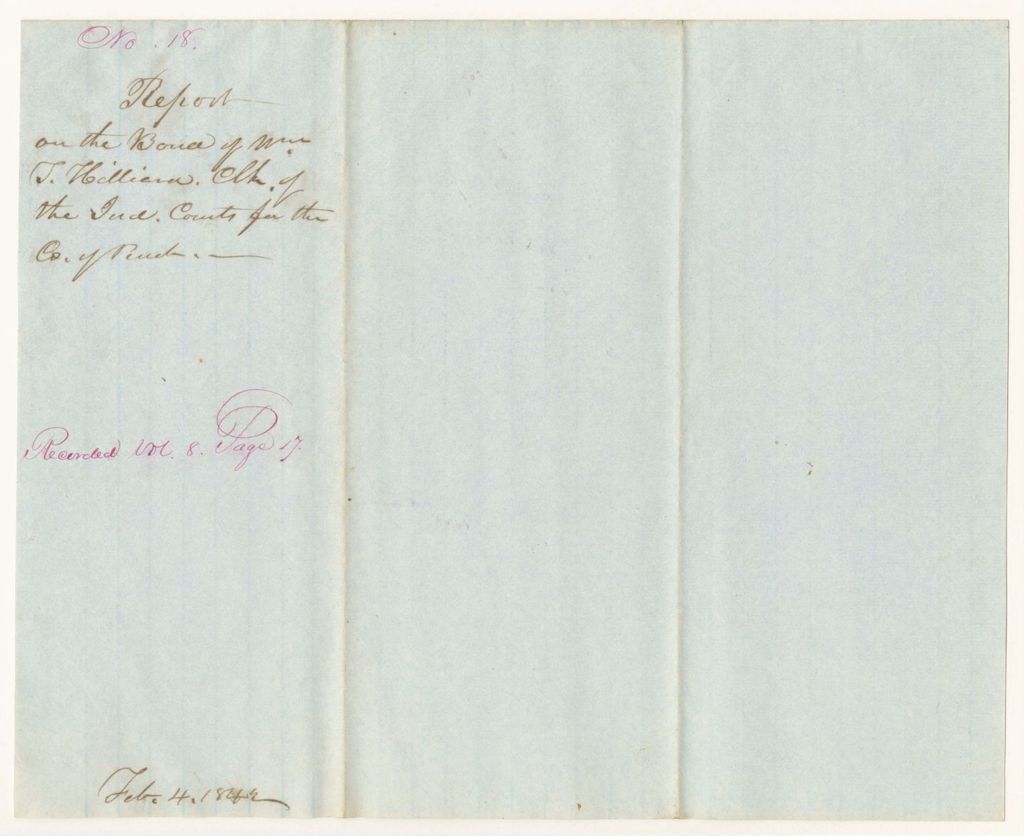 No. 18.
Report
on the Bond of Wm
T. Hilliard. Clk. of
the Jud. Courts for the
Co. of Penob. —
Recorded Vol. 8. Page 17.
Feb. 4. 1842